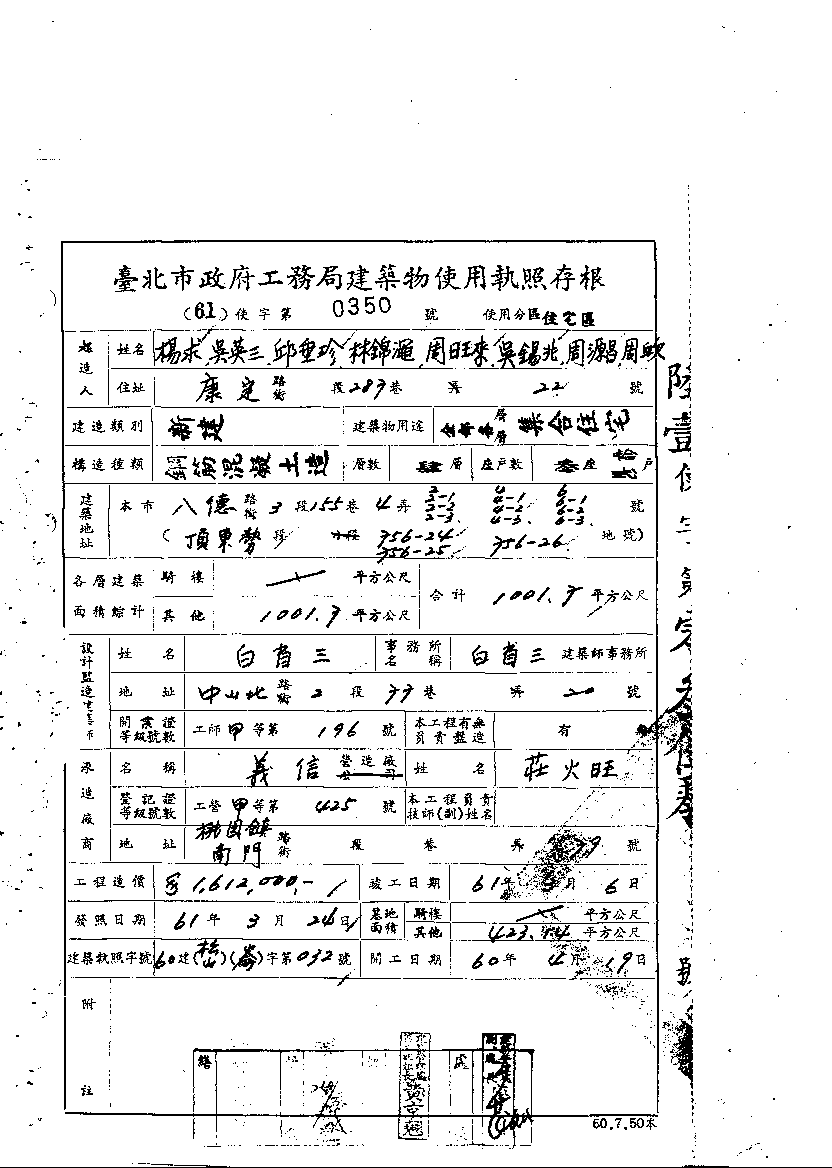 臺北市政府工務局建築物使用執照存根
(61)使字第 0350 號 使用分區 住宅區
起造人 姓名 楊求 吳英三 邱垂珍 林錦 周旺來 吳錫兆 周源昌 周
住址 康定 路街 段 283 巷 弄 22 號
建造類別 新建 建築物用途 集合住宅
構造種類 鋼筋混凝土造 層數 肆層 座戶數 座 戶
建築地址 本市 八德 路街 3 段 155 巷 4 弄 2 2-1 2-2 2-3 4 4-1 4-2 4-3 6 6-1 6-2 6-3 號
(頂東勢 段 小段 356-24 356-25 356-26 地號)
各層建築面積綜計 騎樓 平方公尺 合計 1001.7 平方公尺
其他 1001.7 平方公尺
設計監造 姓名 白省三 事務所名稱 白省三 建築師事務所
地址 中山北 路街 2 段 77 巷 弄 20 號
開業證等級號數 工師甲等第 196 號 本工程有無負責監造 有
承造廠商 名稱 義信 營造廠 公司 姓名 莊火旺
登記證等級號數 工營甲等第 425 號 本工程負責技師(副)姓名
地址 桃園鎮南門 路街 段 巷 弄 號
工程造價 1,612,000,- 竣工日期 61年 3月 6日
發照日期 61年 3月 24日 基地面積 騎樓 平方公尺
其他 423.44 平方公尺
建築執照字號 60建(松山)(崙)字第032號 開工日期 60年 4月 19日
附註
60.7.50本
陸壹使字第零參伍零號